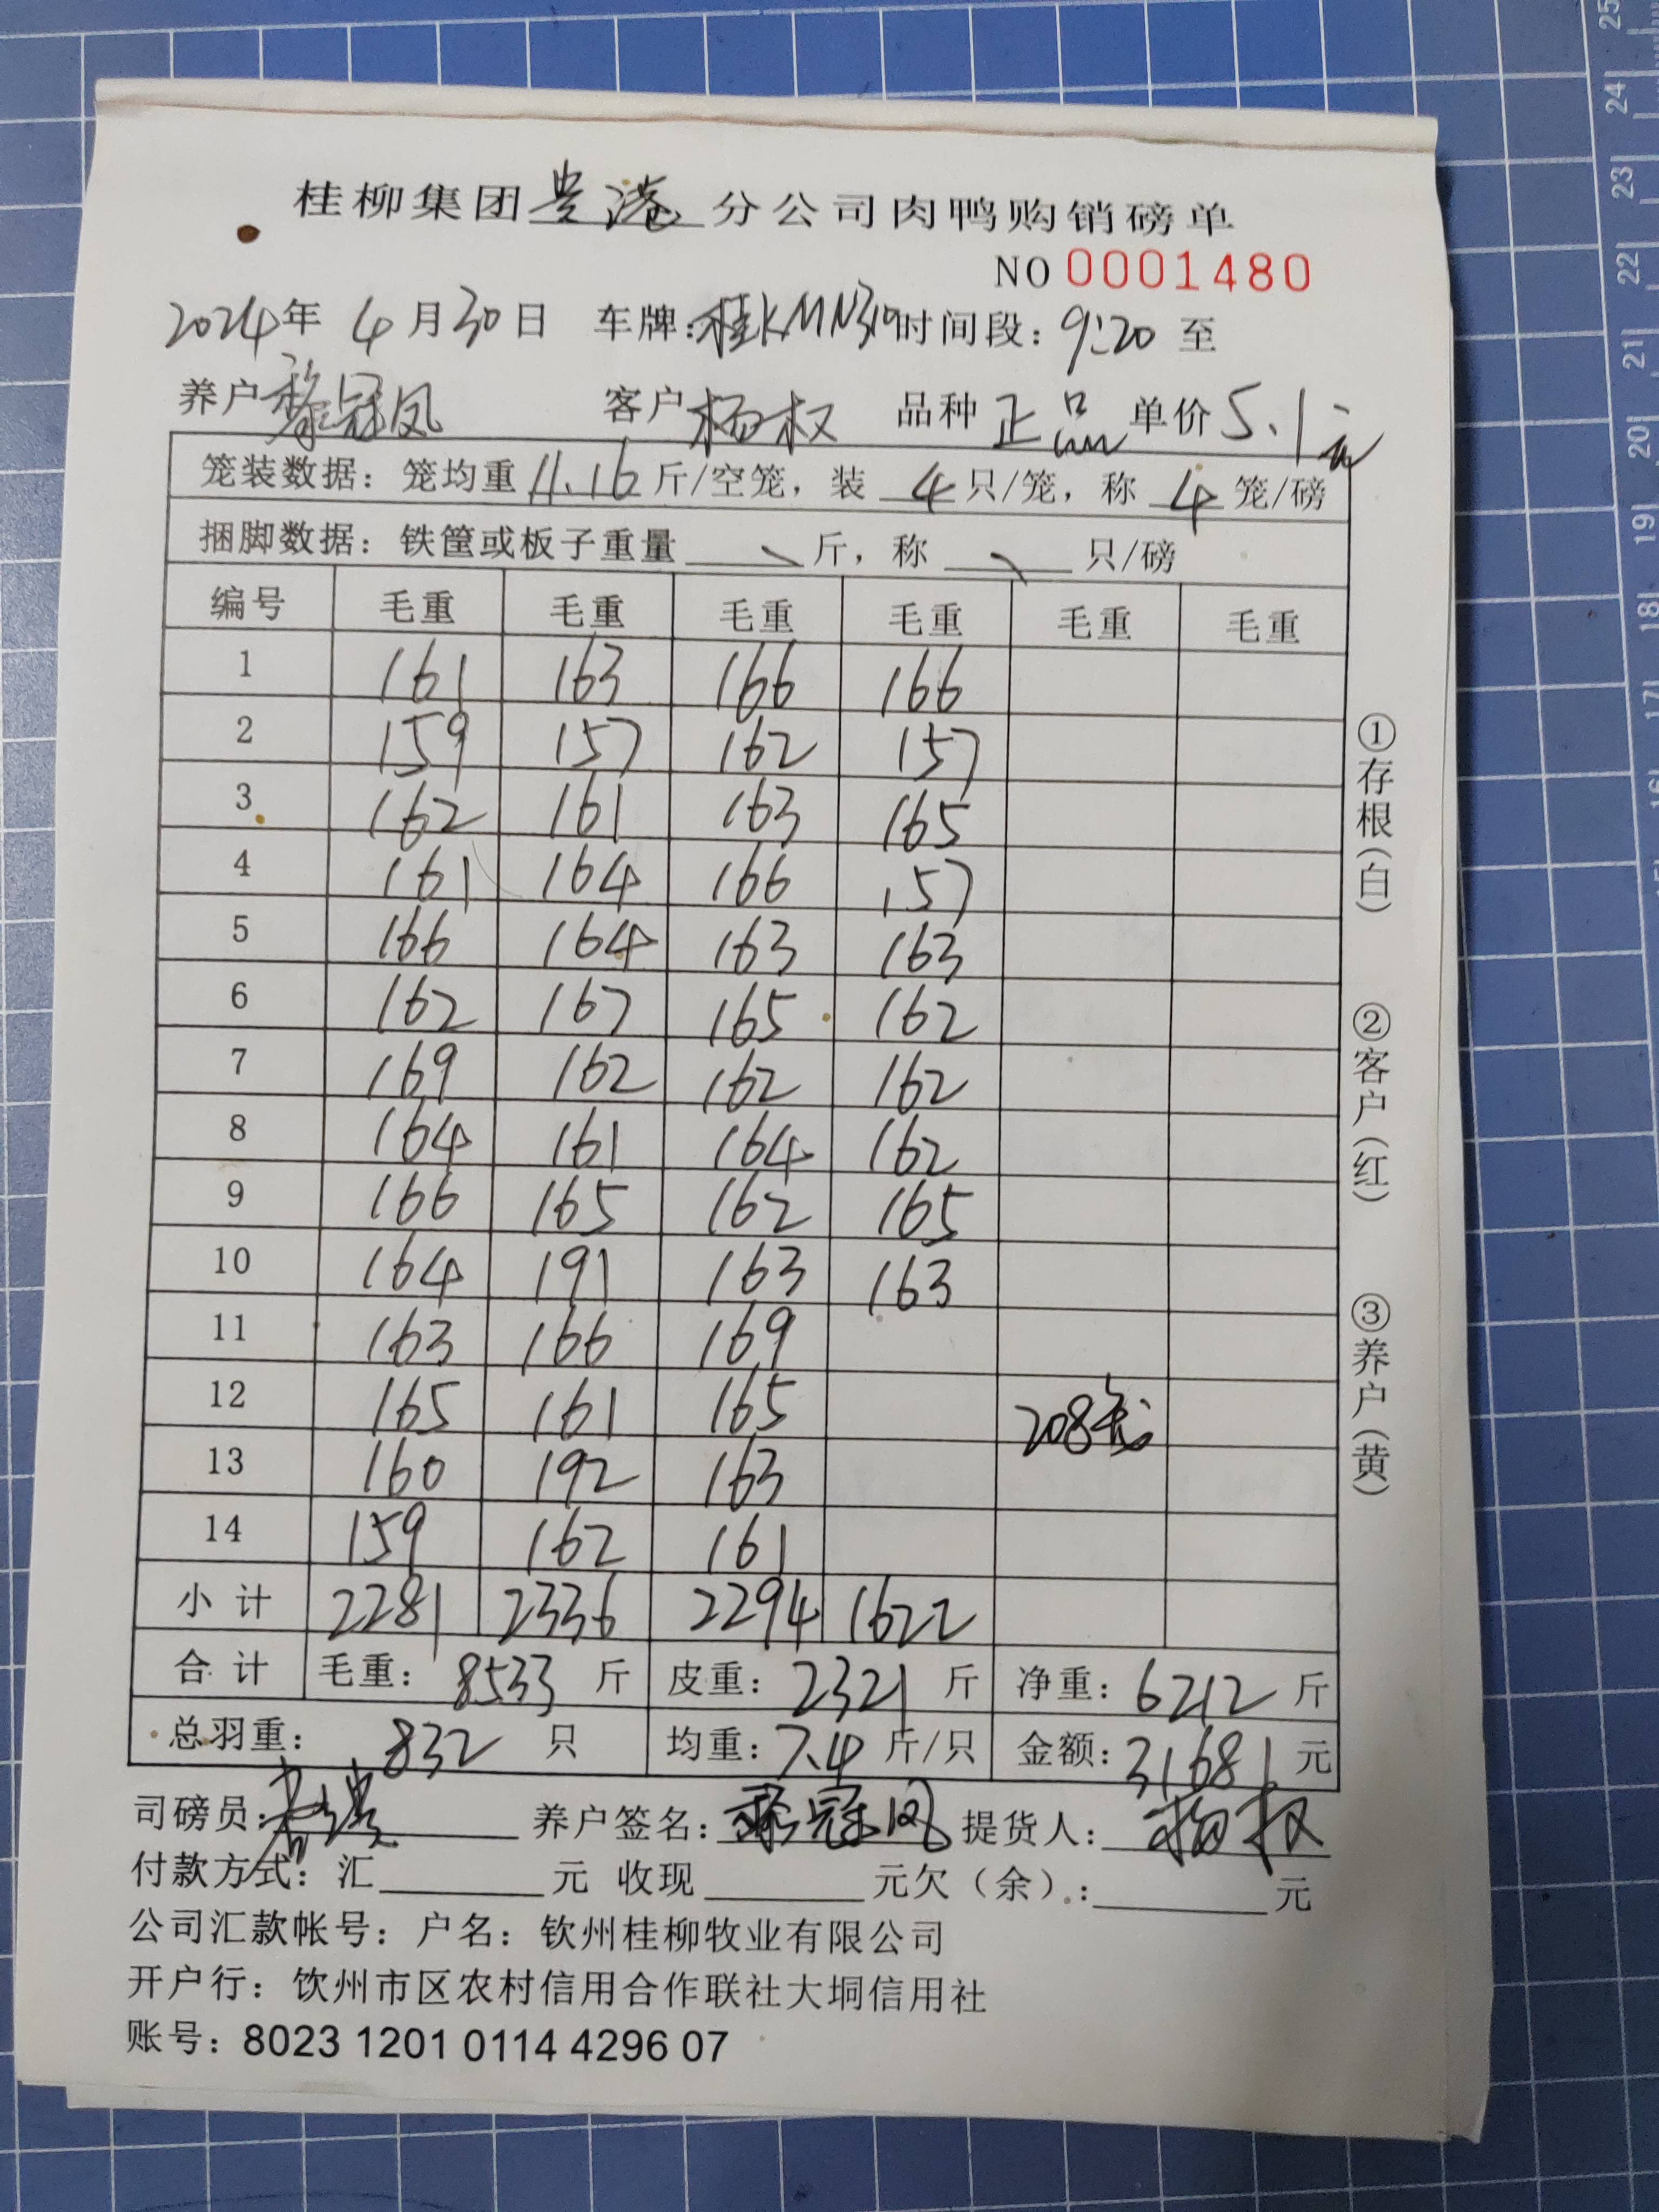 桂柳集团贵港分公司肉鸭购销磅单
NO 0001480
2024年 4月30日 车牌:桂KMN310时间段:9:20 至
养户黎冠凤 客户杨权 品种 正品 单价5.1元
笼装数据:笼均重11.16斤/空笼,装 4 只/笼,称 4 笼/磅
捆脚数据:铁筐或板子重量 斤,称 只/磅
编号 毛重 毛重 毛重 毛重 毛重 毛重
1 161 163 166 166
2 159 157 162 157
3 162 161 163 165
4 161 164 166 157
5 166 164 163 163
6 162 167 165 162
7 169 162 162 162
8 164 161 164 162
9 166 165 162 165
10 164 191 163 163
11 163 166 169
12 165 161 165 208毛
13 160 192 163
14 159 162 161
小计 2281 2336 2294 1622
合计 毛重:8533 斤 皮重:2321 斤 净重:6212 斤
总羽重:832 只 均重:7.4 斤/只 金额:31681 元
司磅员: 养户签名:黎冠凤 提货人:杨权
付款方式:汇 元 收现 元欠(余): 元
公司汇款帐号:户名:钦州桂柳牧业有限公司
开户行:饮州市区农村信用合作联社大垌信用社
账号:8023 1201 0114 4296 07
①存根(白)
②客户(红)
③养户(黄)
25
24
23
22
21
20
19
18
17
16